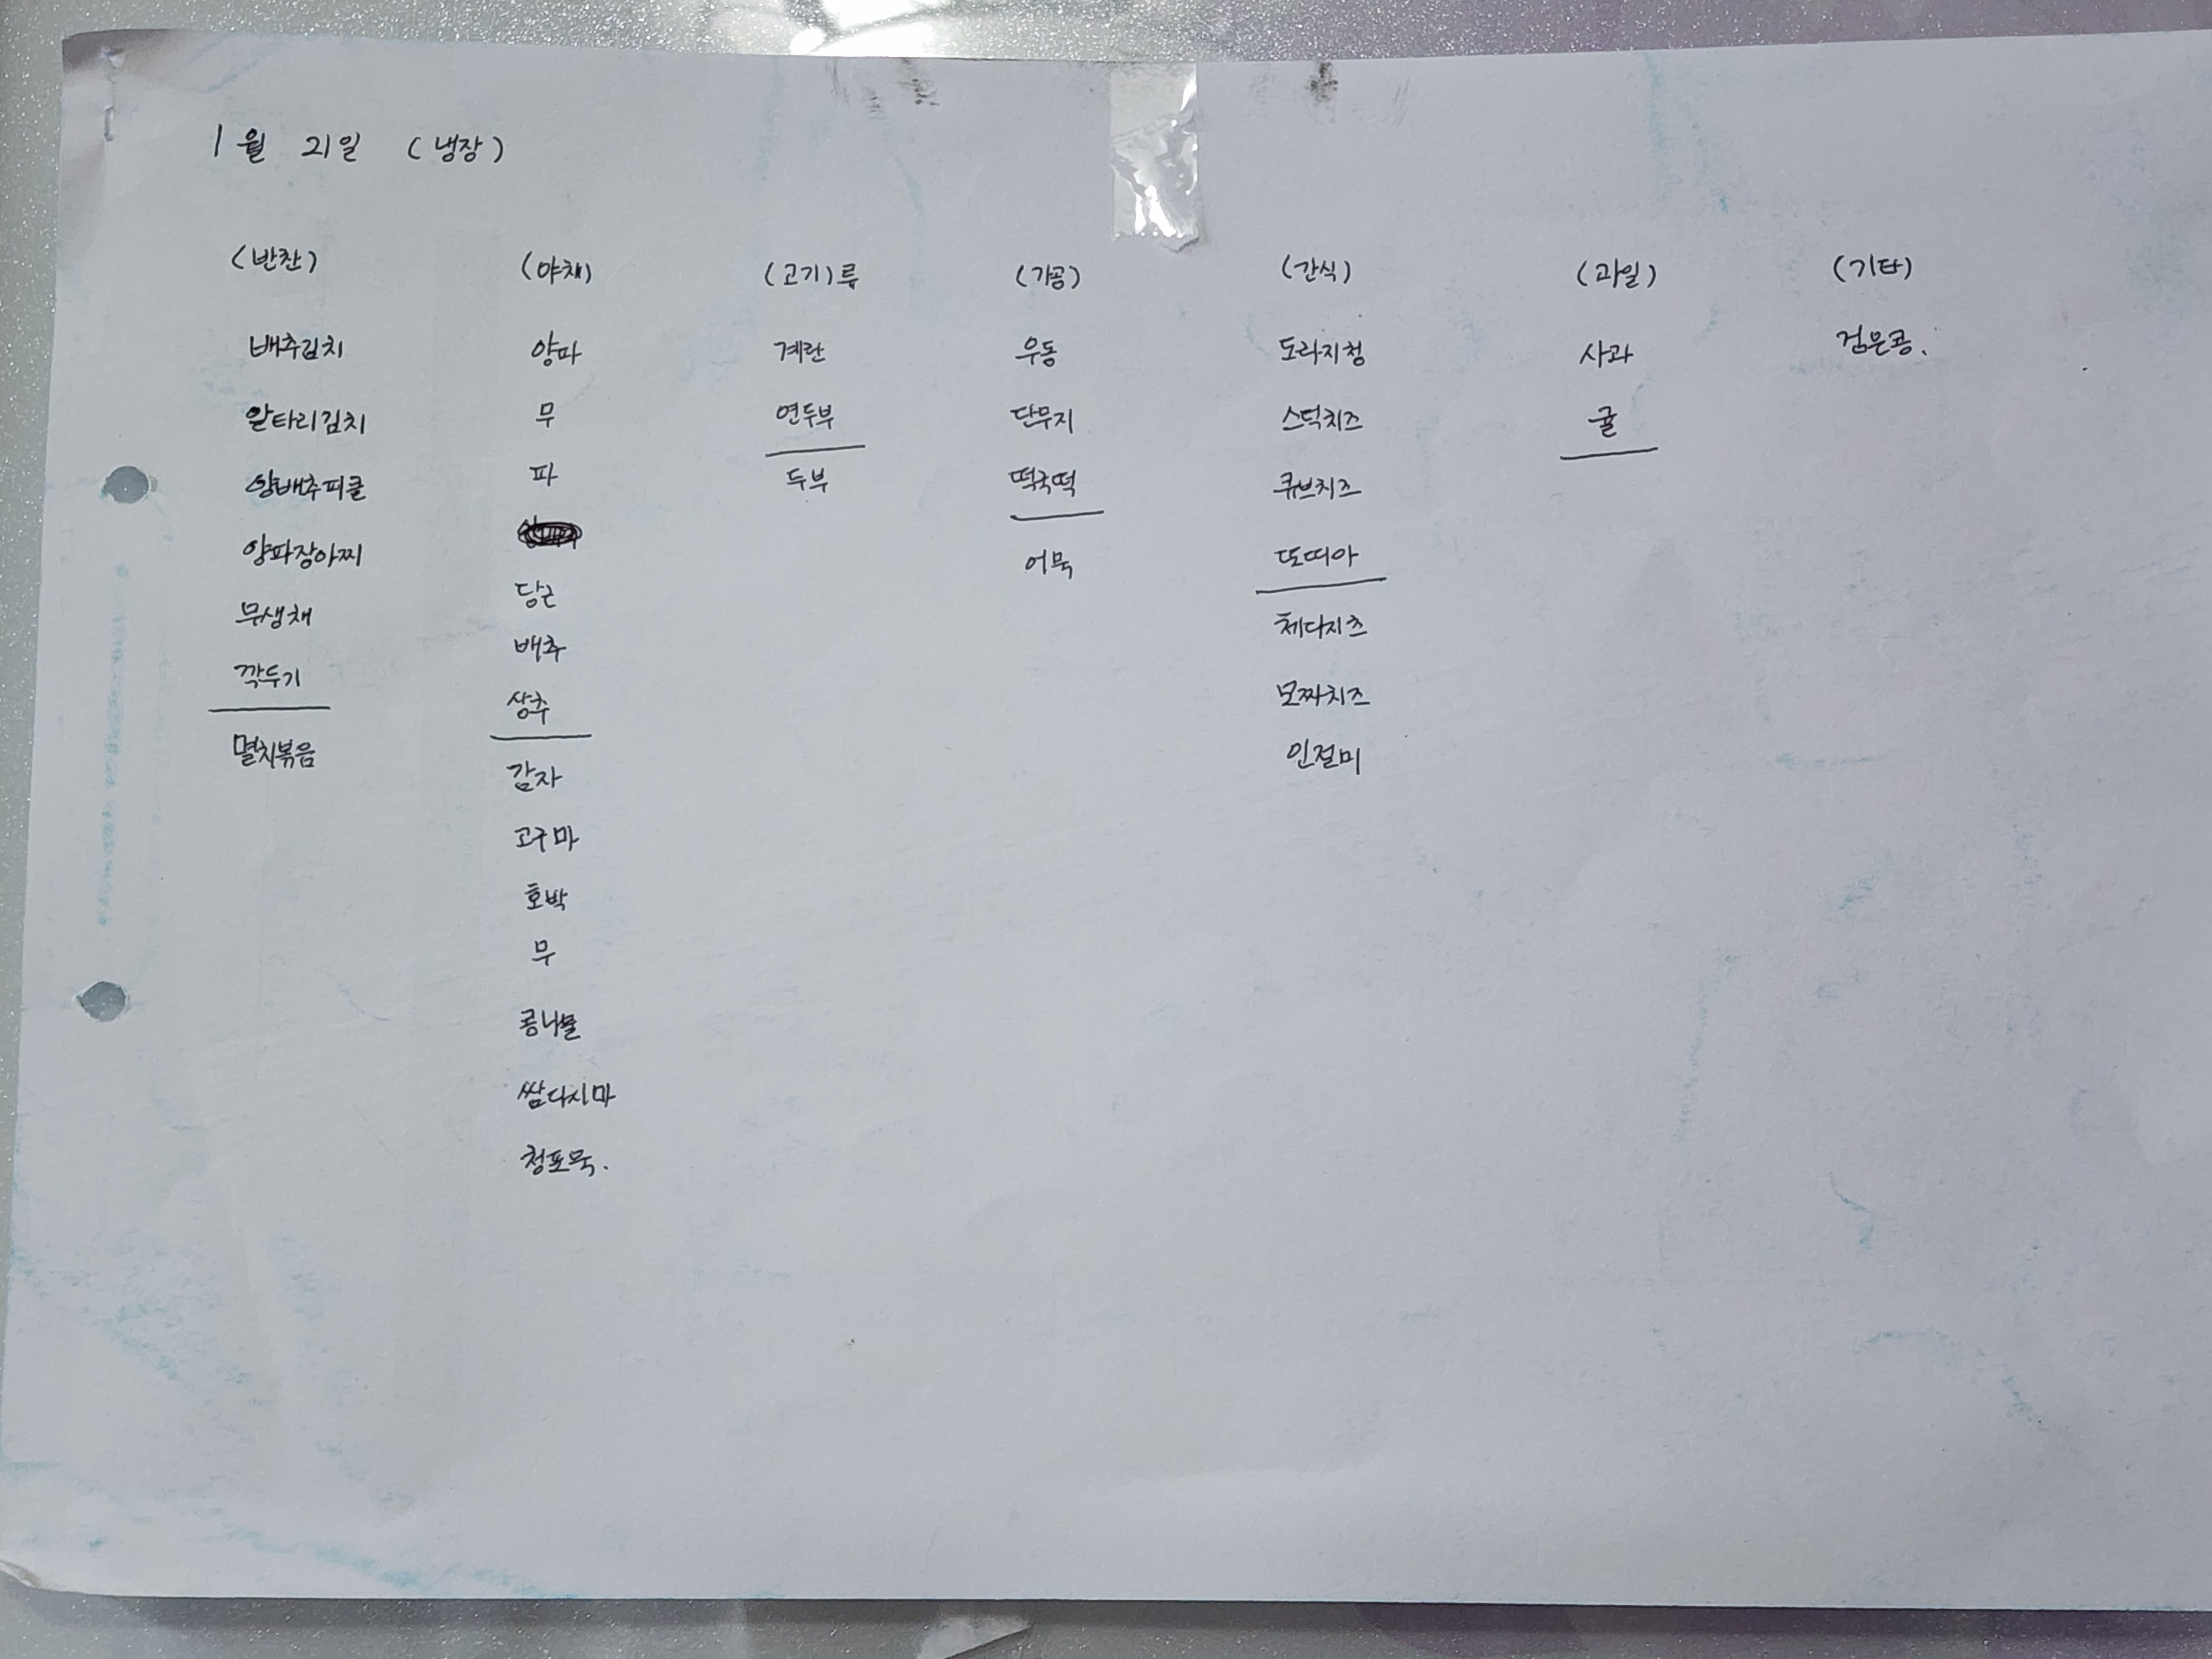 1월 21일 (냉장)
(반찬)
배추김치
알타리김치
양배추피클
양파장아찌
무생채
깍두기
멸치볶음
(야채)
양파
무
파
당근
배추
상추
감자
고구마
호박
무
콩나물
쌈다시마
청포묵.
(고기)류
계란
연두부
두부
(가공)
우동
단무지
떡국떡
어묵
(간식)
도라지청
스턱치즈
큐브치즈
또띠아
체다치즈
모짜치즈
인절미
(과일)
사과
귤
(기타)
검은콩.